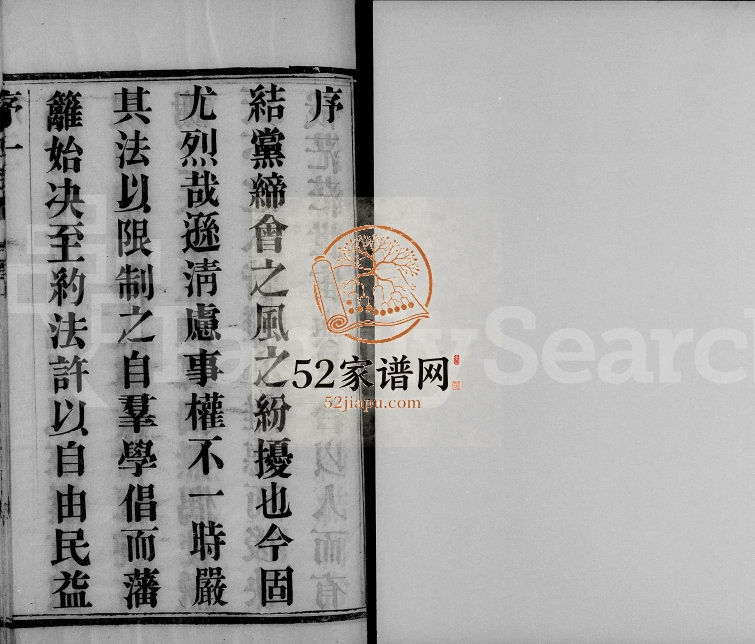 序
結黨締會之風之紛擾也今固
尤烈哉遜清慮事權不一時嚴
其法以限制之自羣學倡而藩
籬始决至約法許以自由民益
序
一
52家谱网
52jiapu.com
FamilySearch